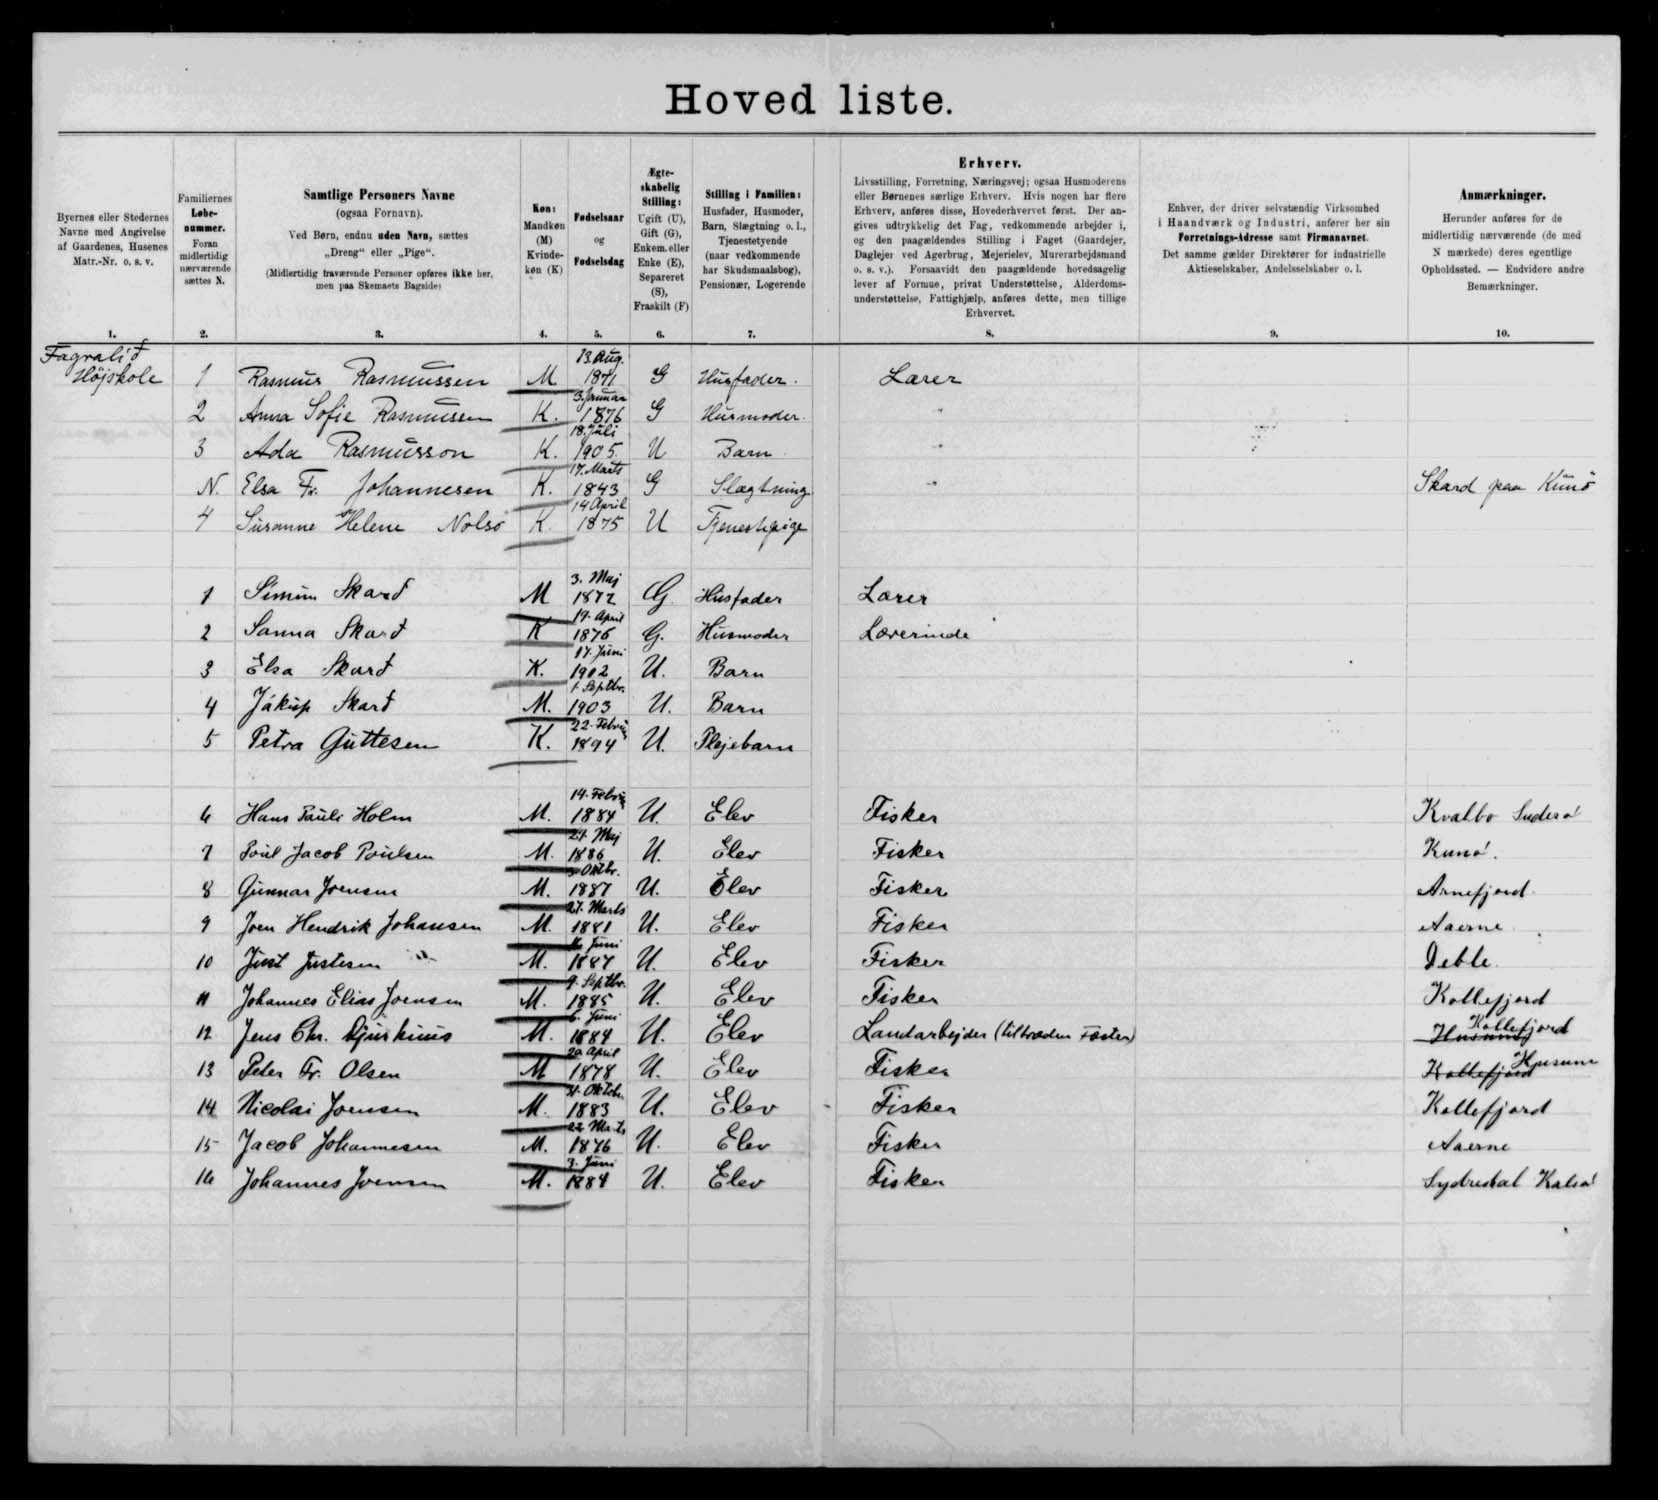 Hoved liste.
Byernes eller Stedernes
Navne med Angivelse
af Gaardenes, Husenes
Matr.-Nr. o. s. v.
1.
Familiernes
Løbe-
nummer.
Foran
midlertidig
nærværende
sættes N.
2.
Samtlige Personers Navne
(ogsaa Fornavn).
Ved Børn, endnu uden Navn, sættes
„Dreng“ eller „Pige“.
(Midlertidig fraværende Personer opføres ikke her,
men paa Skemaets Bagside)
3.
Køn:
Mandkøn
(M)
Kvinde-
køn (K)
4.
Fødselsaar
og
Fødselsdag
5.
Ægte-
skabelig
Stilling:
Ugift (U),
Gift (G),
Enkem. eller
Enke (E),
Separeret
(S),
Fraskilt (F)
6.
Stilling i Familien:
Husfader, Husmoder,
Barn, Slægtning o. l.,
Tjenestetyende
(naar vedkommende
har Skudsmaalsbog),
Pensionær, Logerende
7.
Erhverv.
Livsstilling, Forretning, Næringsvej; ogsaa Husmoderens
eller Børnenes særlige Erhverv. Hvis nogen har flere
Erhverv, anføres disse, Hovederhvervet først. Der an-
gives udtrykkelig det Fag, vedkommende arbejder i,
og den paagældendes Stilling i Faget (Gaardejer,
Daglejer ved Agerbrug, Mejerielev, Murerarbejdsmand
o. s. v.). Forsaavidt den paagældende hovedsagelig
lever af Formue, privat Understøttelse, Alderdoms-
understøttelse, Fattighjælp, anføres dette, men tillige
Erhvervet.
8.
Enhver, der driver selvstændig Virksomhed
i Haandværk og Industri, anfører her sin
Forretnings-Adresse samt Firmanavnet.
Det samme gælder Direktører for industrielle
Aktieselskaber, Andelsselskaber o. l.
9.
Anmærkninger.
Herunder anføres for de
midlertidig nærværende (de med
N mærkede) deres egentlige
Opholdssted. — Endvidere andre
Bemærkninger.
10.
Fagralíð
Højskole 1 Rasmus Rasmussen M 13. Aug. 1871 G Husfader. Lærer
2 Anna Sofie Rasmussen K. 3. Januar 1876 G Husmoder. "
3 Ada Rasmusson K. 18. Juli 1905. U Barn "
N. Elsa Fr. Johannesen K. 17. Marts 1843 G Slægtning "  Skard paa Kunø
4 Susanne Helene Nolsø K 14 April 1875 U Tjenestepige
1 Símun Skarð M 3. Maj 1872 G. Husfader Lærer
2 Sanna Skarð K 19. April 1876 G. Husmoder Lærerinde
3 Elsa Skarð K. 17. Juni 1902 U. Barn
4 Jákup Skarð M. 1. Septbr. 1903 U. Barn
5 Petra Guttesen K. 22. 1894 U. Plejebarn
6 Hans Pauli Holm M. 14. 1884 U. Elev Fisker Kvalbø Suderø
7 Poul Jacob Poulsen M. 21. Maj 1886 U. Elev Fisker Kunø.
8 Gunnar Joensen M. Oktbr. 1887 U. Elev Fisker Arnefjord.
9 Joen Hendrik Johansen M. 27. Marts 1881 U. Elev Fisker Aaerne.
10 Just Justesen M. Juni 1887 U. Elev Fisker Deble.
11 Johannes Elias Joensen M. 9. Septbr. 1885 U. Elev Fisker Kollefjord
12 Jens Chr. Djurhuus M. 6. Juni 1884 U. Elev Landarbejder (tiltræden Fæster) Husum Kollefjord
13 Peter Fr. Olsen M 20 April 1878 U. Elev Fisker Kollefjord Husum
14 Nicolai Joensen M. Oktobr. 1883 U. Elev Fisker Kollefjord
15 Jacob Johannesen M. 22 Marts 1876 U. Elev Fisker Aaerne
16 Johannes Joensen M. 3. Juni 1884 U. Elev Fisker Sydredal Kalsø